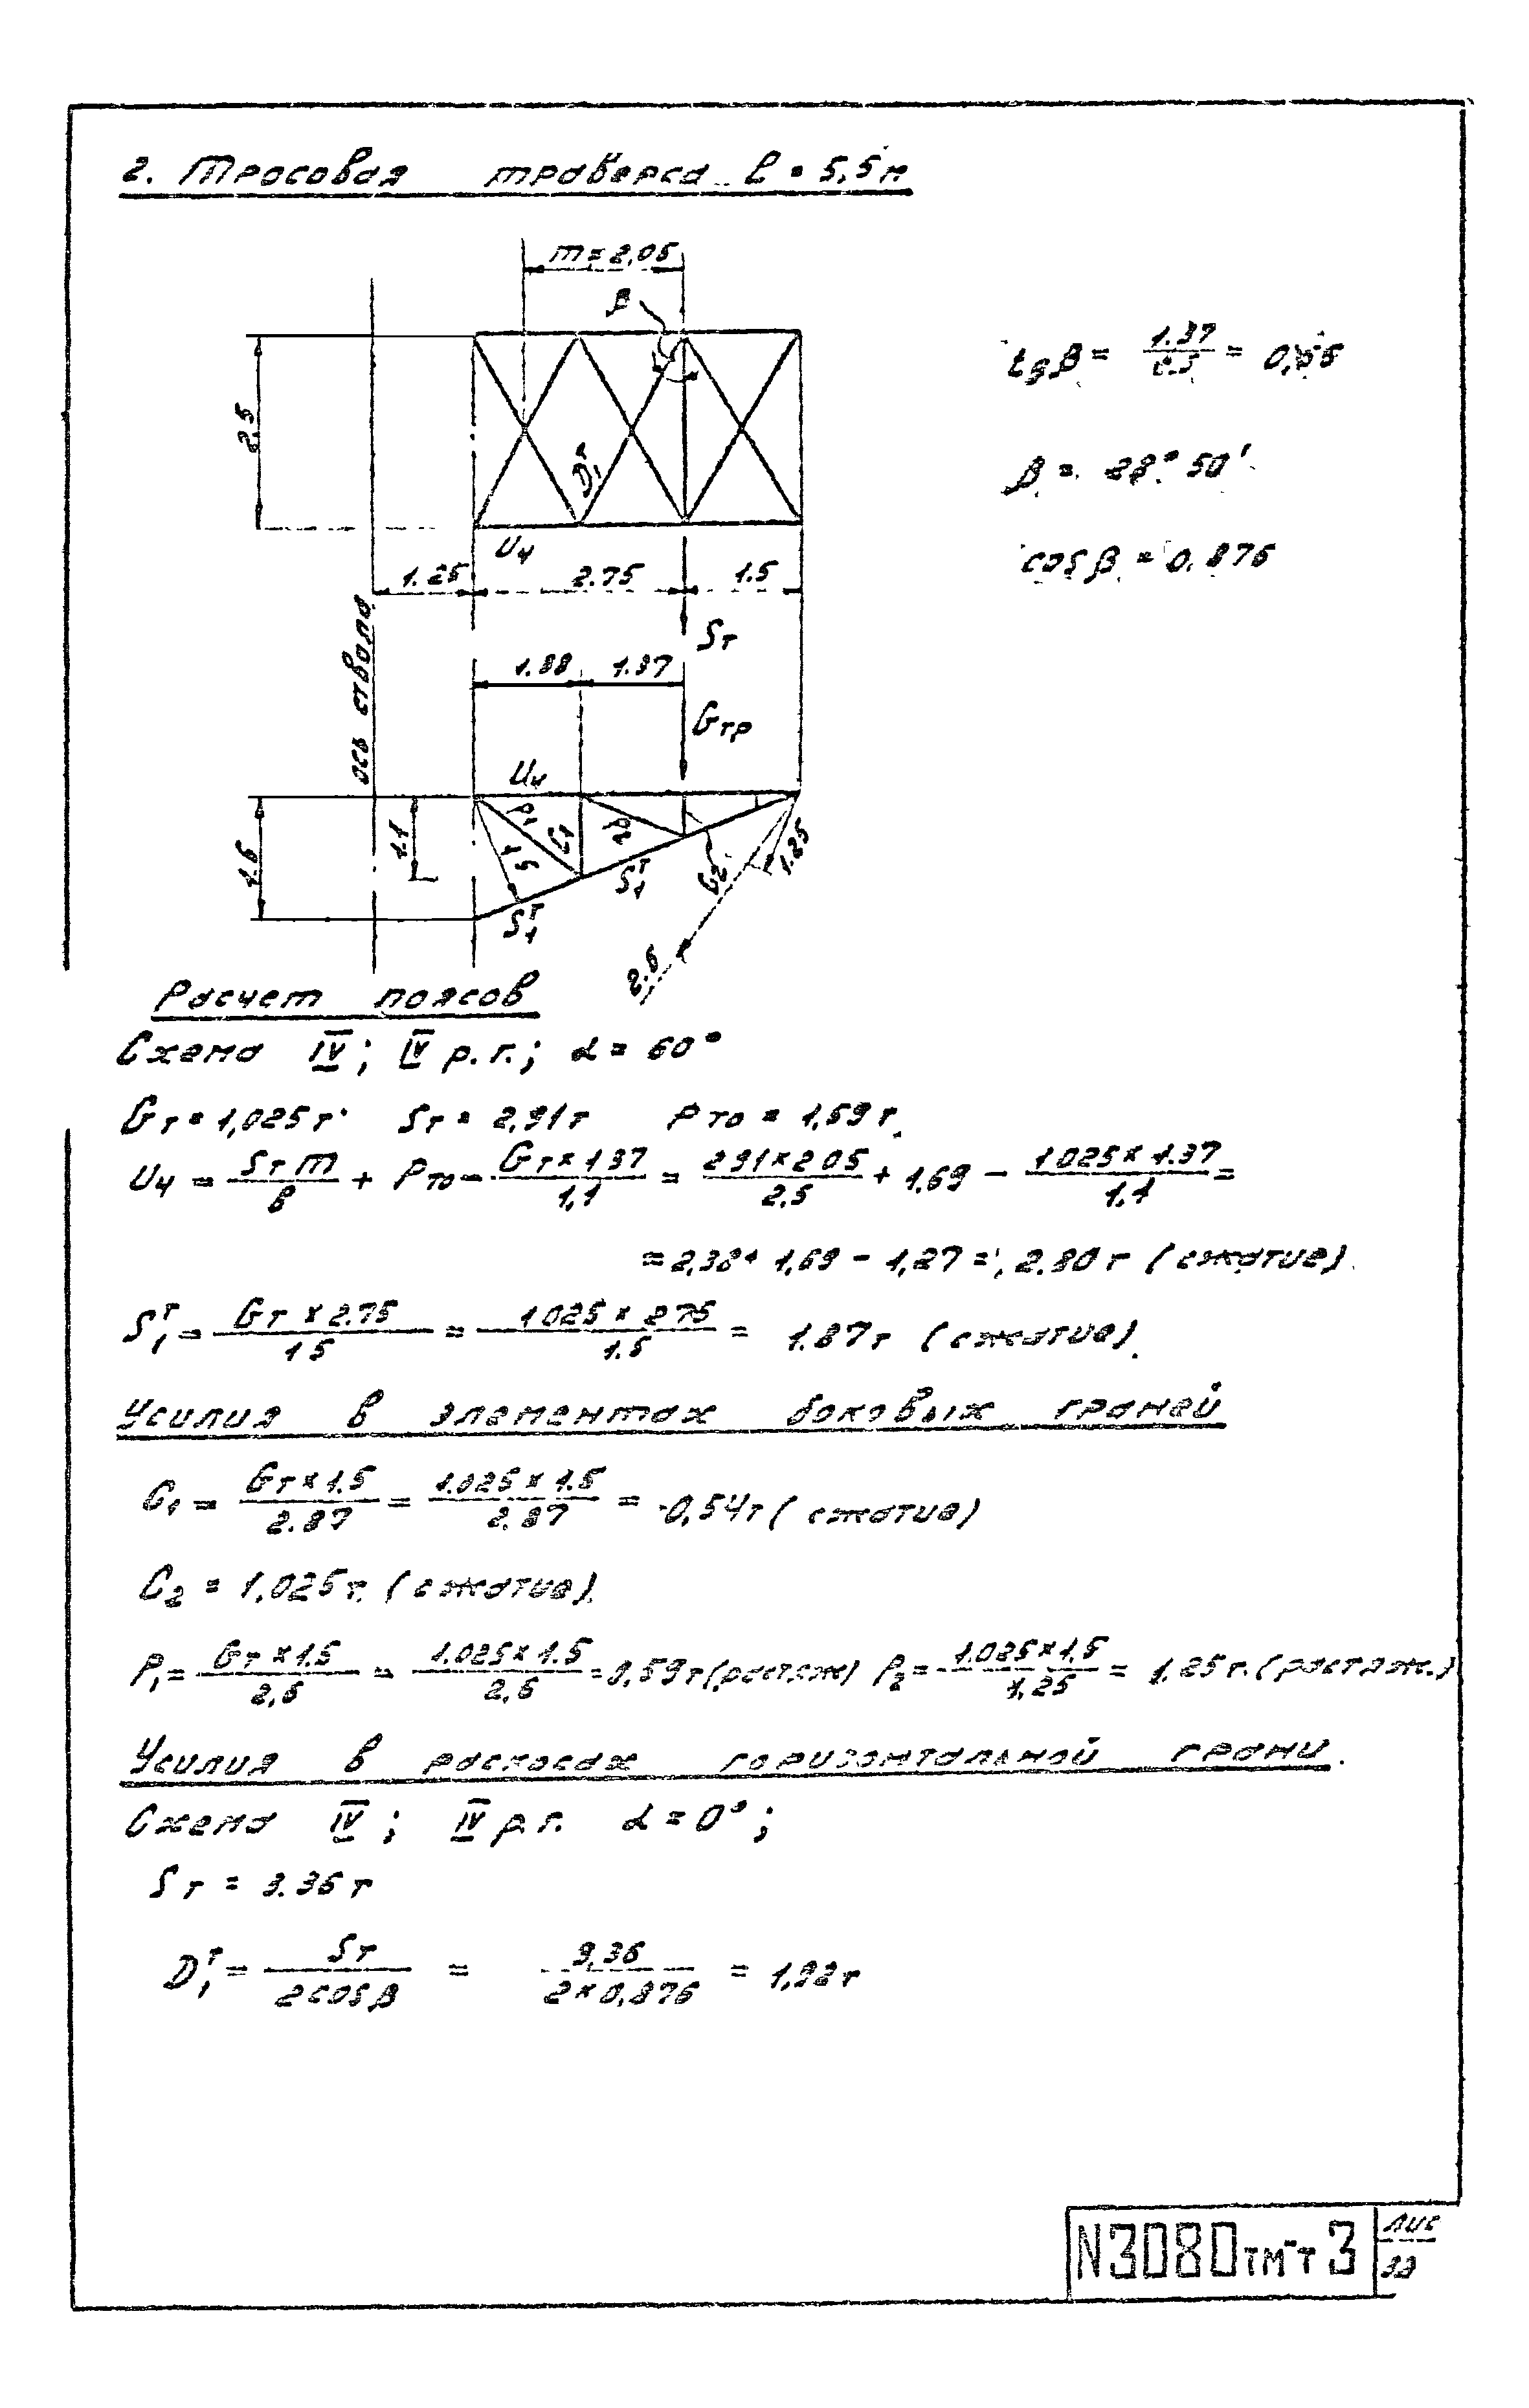 2. Тросовая траверса ℓ = 5,5 м
m = 2,05
β
2.5
D₁ᴦ
U₄
1.25 2.75 1.5
Sт
1.37
Gтр
ось ствола
U₄
1.6
1.1
C₁
S₁ᵀ
S₁ᵀ
C₂
1.25
2.6
tgβ = 1.37 / 2.5 = 0,55
β = 28° 50'
cosβ = 0.876
Расчет поясов
Схема IV; IV р.г.; α = 60°
Gт = 1,025 т Sт = 2,91 т Pто = 1,69 т.
U₄ = Sт m / в + Pто − Gт × 1 37 / 1,1 = 2 91 × 2 05 / 2,5 + 1,69 − 1 025 × 1.37 / 1,1 =
= 2,38 + 1,69 − 1,27 = 2.80 т (сжатие).
S₁ᵀ = Gт × 2.75 / 1 5 = 1 025 × 2 75 / 1.5 = 1.87 т (сжатие).
Усилия в элементах боковых граней
C₁ = Gт × 1.5 / 2.87 = 1.025 × 1.5 / 2.87 = 0,54 т (сжатие)
C₂ = 1.025 т. (сжатие).
P₁ = Gт × 1.5 / 2,6 = 1.025 × 1.5 / 2,6 = 0,59 т (растяж) P₂ = 1.025 × 1,5 / 1,25 = 1,25 т. (растяж.)
Усилия в раскосах горизонтальной грани.
Схема IV; IV р.г. α = 0°;
Sт = 3.36 т
D₁ᵀ = Sт / 2 cosβ = 3,36 / 2 × 0,876 = 1,92 т
N3080тм-т3
Лис
33